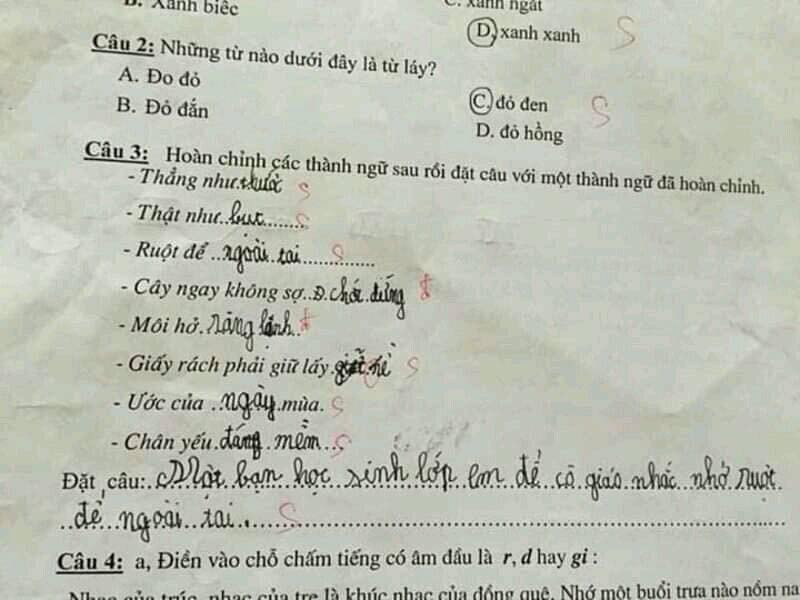 B. Xanh biếc
C. xanh ngắt
D. xanh xanh S
Câu 2: Những từ nào dưới đây là từ láy?
A. Đo đỏ
B. Đỏ đắn
C. đỏ đen S
D. đỏ hồng
Câu 3: Hoàn chỉnh các thành ngữ sau rồi đặt câu với một thành ngữ đã hoàn chỉnh.
- Thẳng như thước S
- Thật như..bưt........ S
- Ruột để ..ngoài tai............... S
- Cây ngay không sợ..chết đứng đ
- Môi hở.răng lạnh.. đ
- Giấy rách phải giữ lấy S
- Ước của ..ngày.mùa. S
- Chân yếu.đáng..mềm... S
Đặt câu:..Một bạn học sinh lớp em để cô giáo nhắc nhở ruột
để ngoài tai. S
Câu 4: a, Điền vào chỗ chấm tiếng có âm đầu là r, d hay gi :
Nhạc của trúc, nhạc của tre là khúc nhạc của đồng quê. Nhớ một buổi trưa nào nồm na